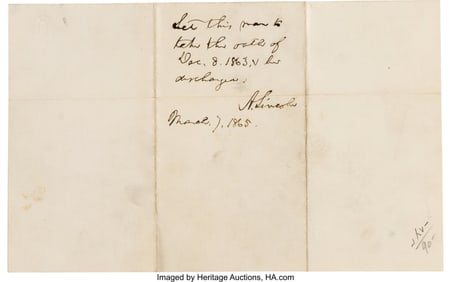 Let this man to
take the oath of
Dec. 8. 1863, & be
discharged.
A. Lincoln
March. 7. 1865.
Imaged by Heritage Auctions, HA.com